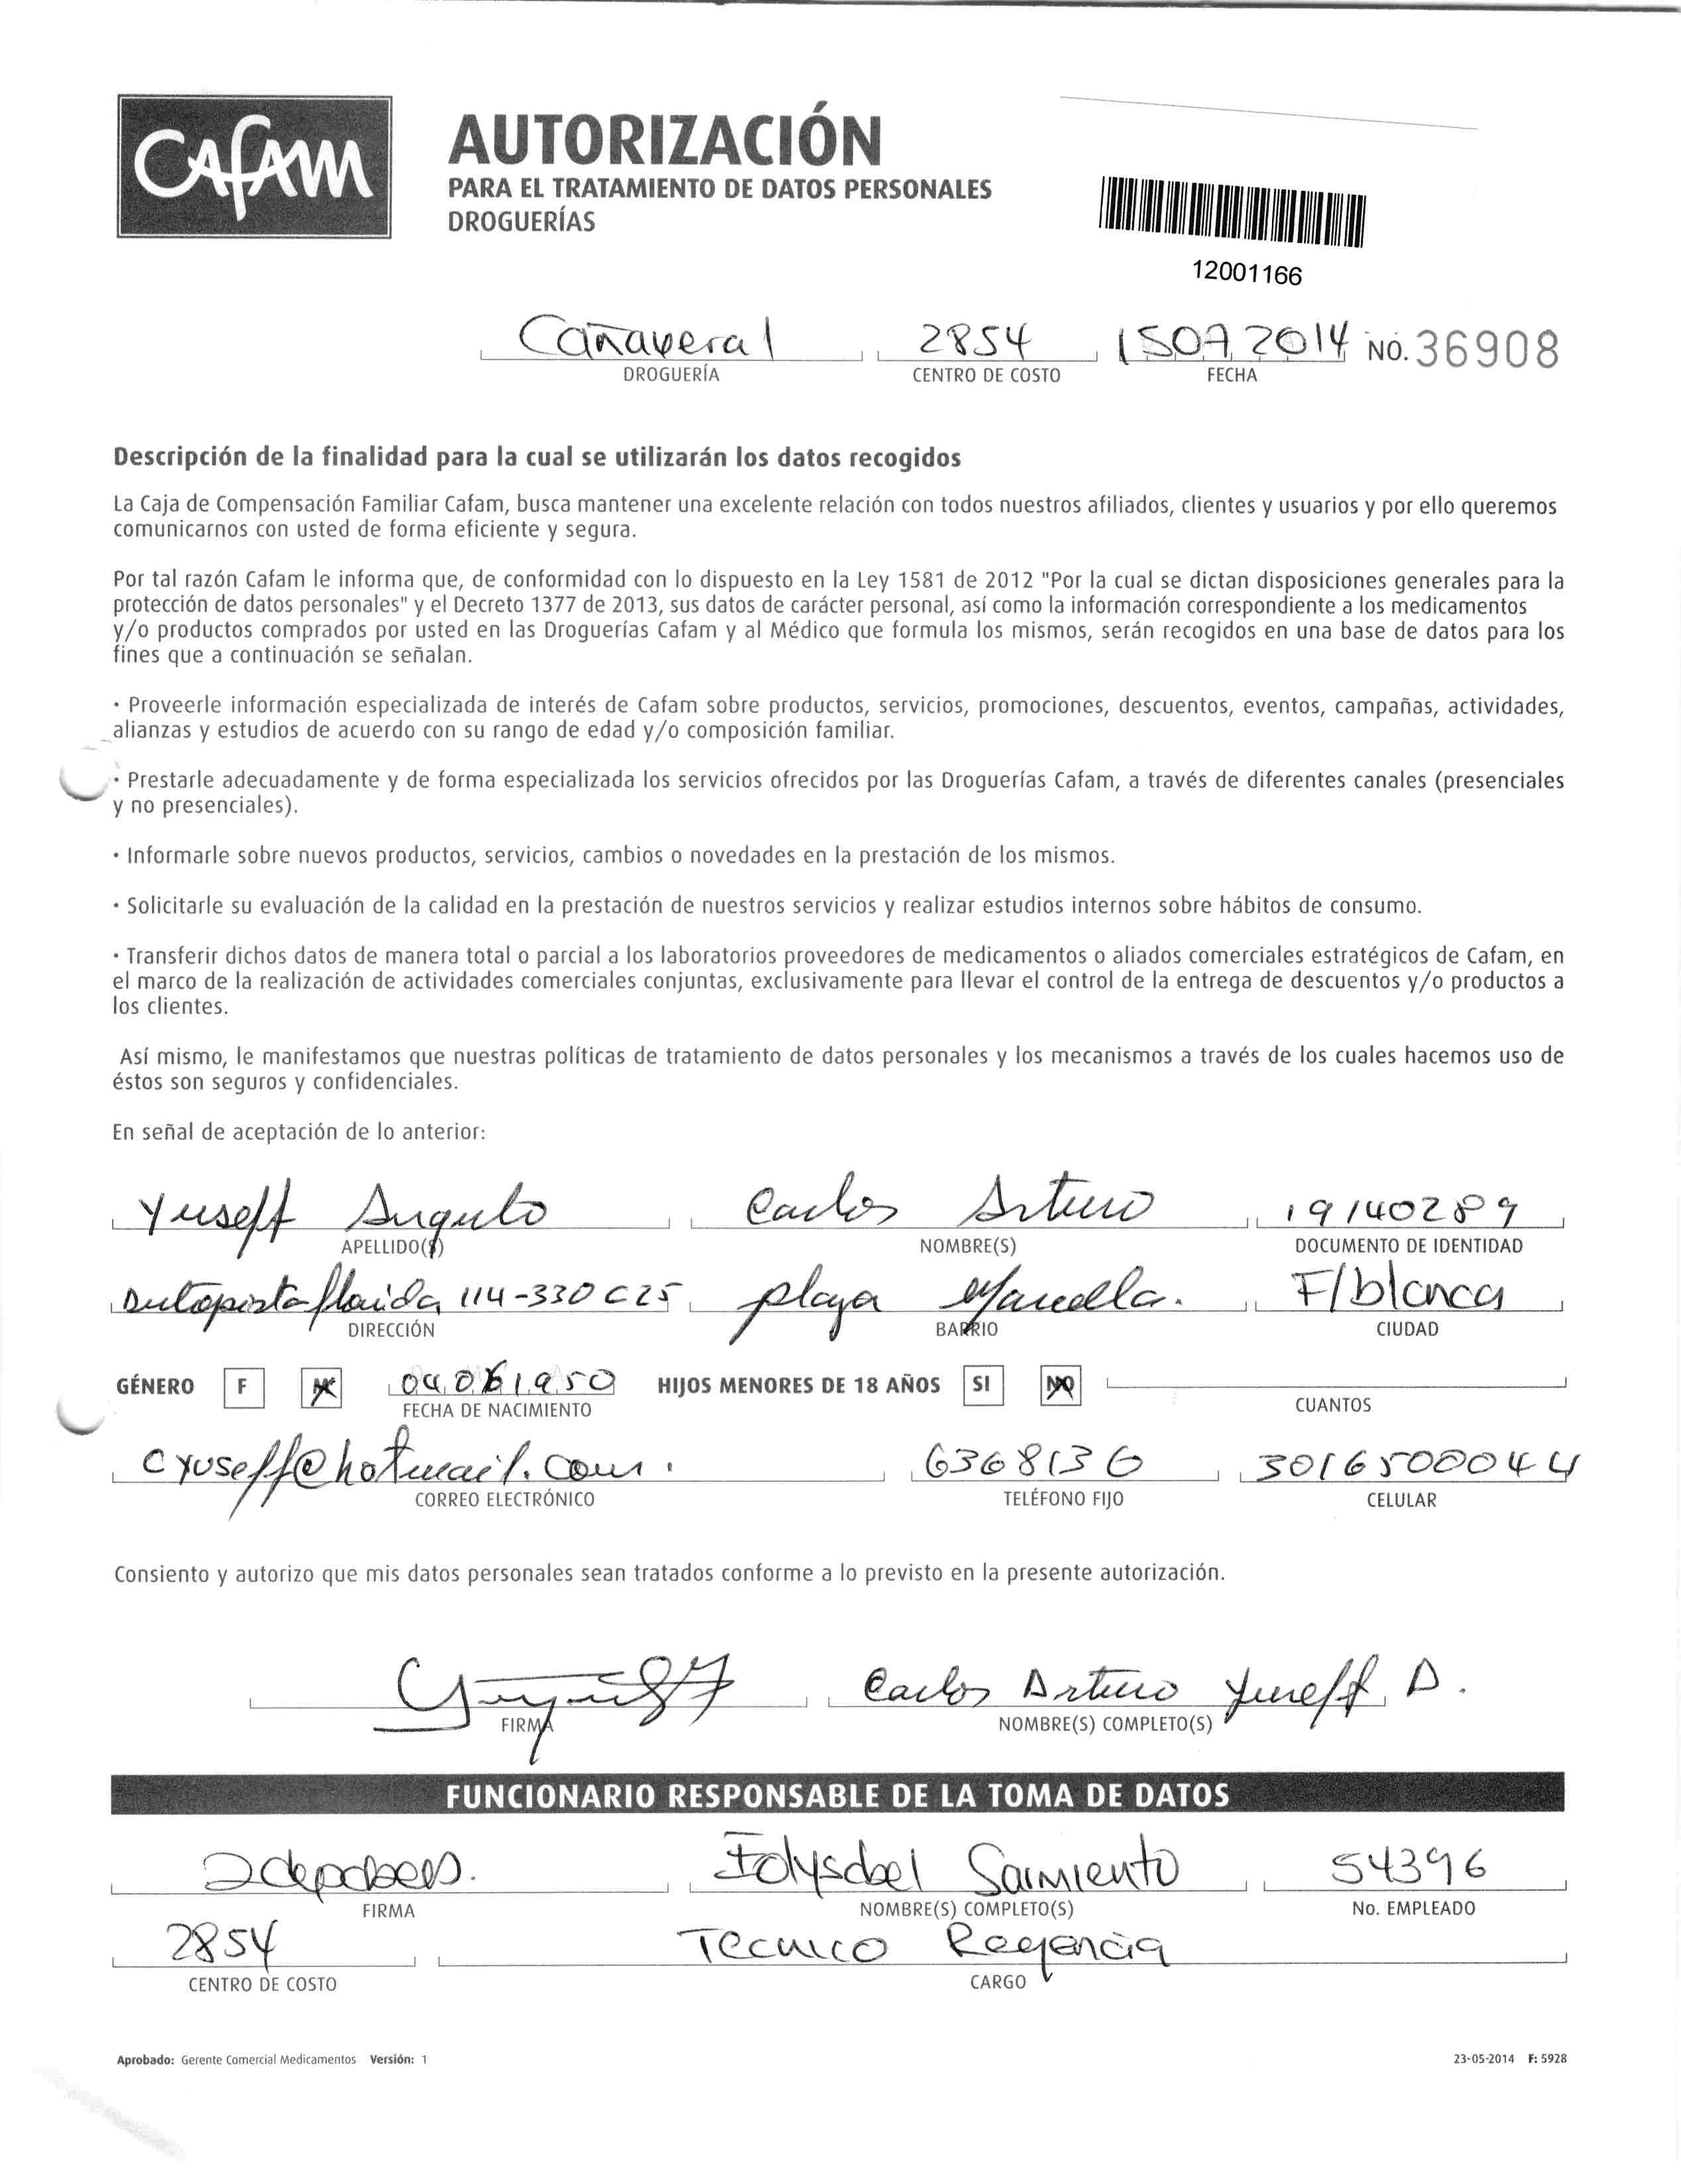 CAFAM
AUTORIZACIÓN
PARA EL TRATAMIENTO DE DATOS PERSONALES
DROGUERÍAS
12001166
Cañaveral 2854 15072014 NO. 36908
DROGUERÍA CENTRO DE COSTO FECHA
Descripción de la finalidad para la cual se utilizarán los datos recogidos
La Caja de Compensación Familiar Cafam, busca mantener una excelente relación con todos nuestros afiliados, clientes y usuarios y por ello queremos
comunicarnos con usted de forma eficiente y segura.
Por tal razón Cafam le informa que, de conformidad con lo dispuesto en la Ley 1581 de 2012 "Por la cual se dictan disposiciones generales para la
protección de datos personales" y el Decreto 1377 de 2013, sus datos de carácter personal, así como la información correspondiente a los medicamentos
y/o productos comprados por usted en las Droguerías Cafam y al Médico que formula los mismos, serán recogidos en una base de datos para los
fines que a continuación se señalan.
· Proveerle información especializada de interés de Cafam sobre productos, servicios, promociones, descuentos, eventos, campañas, actividades,
alianzas y estudios de acuerdo con su rango de edad y/o composición familiar.
· Prestarle adecuadamente y de forma especializada los servicios ofrecidos por las Droguerías Cafam, a través de diferentes canales (presenciales
y no presenciales).
· Informarle sobre nuevos productos, servicios, cambios o novedades en la prestación de los mismos.
· Solicitarle su evaluación de la calidad en la prestación de nuestros servicios y realizar estudios internos sobre hábitos de consumo.
· Transferir dichos datos de manera total o parcial a los laboratorios proveedores de medicamentos o aliados comerciales estratégicos de Cafam, en
el marco de la realización de actividades comerciales conjuntas, exclusivamente para llevar el control de la entrega de descuentos y/o productos a
los clientes.
Así mismo, le manifestamos que nuestras políticas de tratamiento de datos personales y los mecanismos a través de los cuales hacemos uso de
éstos son seguros y confidenciales.
En señal de aceptación de lo anterior:
Yuseff Angulo Carlos Arturo 19140289
APELLIDO(S) NOMBRE(S) DOCUMENTO DE IDENTIDAD
Autopista florida 114-330 C25 playa Marcella. F/blanca
DIRECCIÓN BARRIO CIUDAD
GÉNERO F M 04061950 HIJOS MENORES DE 18 AÑOS SI NO
FECHA DE NACIMIENTO CUANTOS
cyuseff@hotmail.com. 6368136 3016500044
CORREO ELECTRÓNICO TELÉFONO FIJO CELULAR
Consiento y autorizo que mis datos personales sean tratados conforme a lo previsto en la presente autorización.
Carlos Arturo Yuseff A.
FIRMA NOMBRE(S) COMPLETO(S)
FUNCIONARIO RESPONSABLE DE LA TOMA DE DATOS
Sarmiento 54396
FIRMA NOMBRE(S) COMPLETO(S) No. EMPLEADO
2854 Tecnico Regencia
CENTRO DE COSTO CARGO
Aprobado: Gerente Comercial Medicamentos Versión: 1 23-05-2014 F: 5928